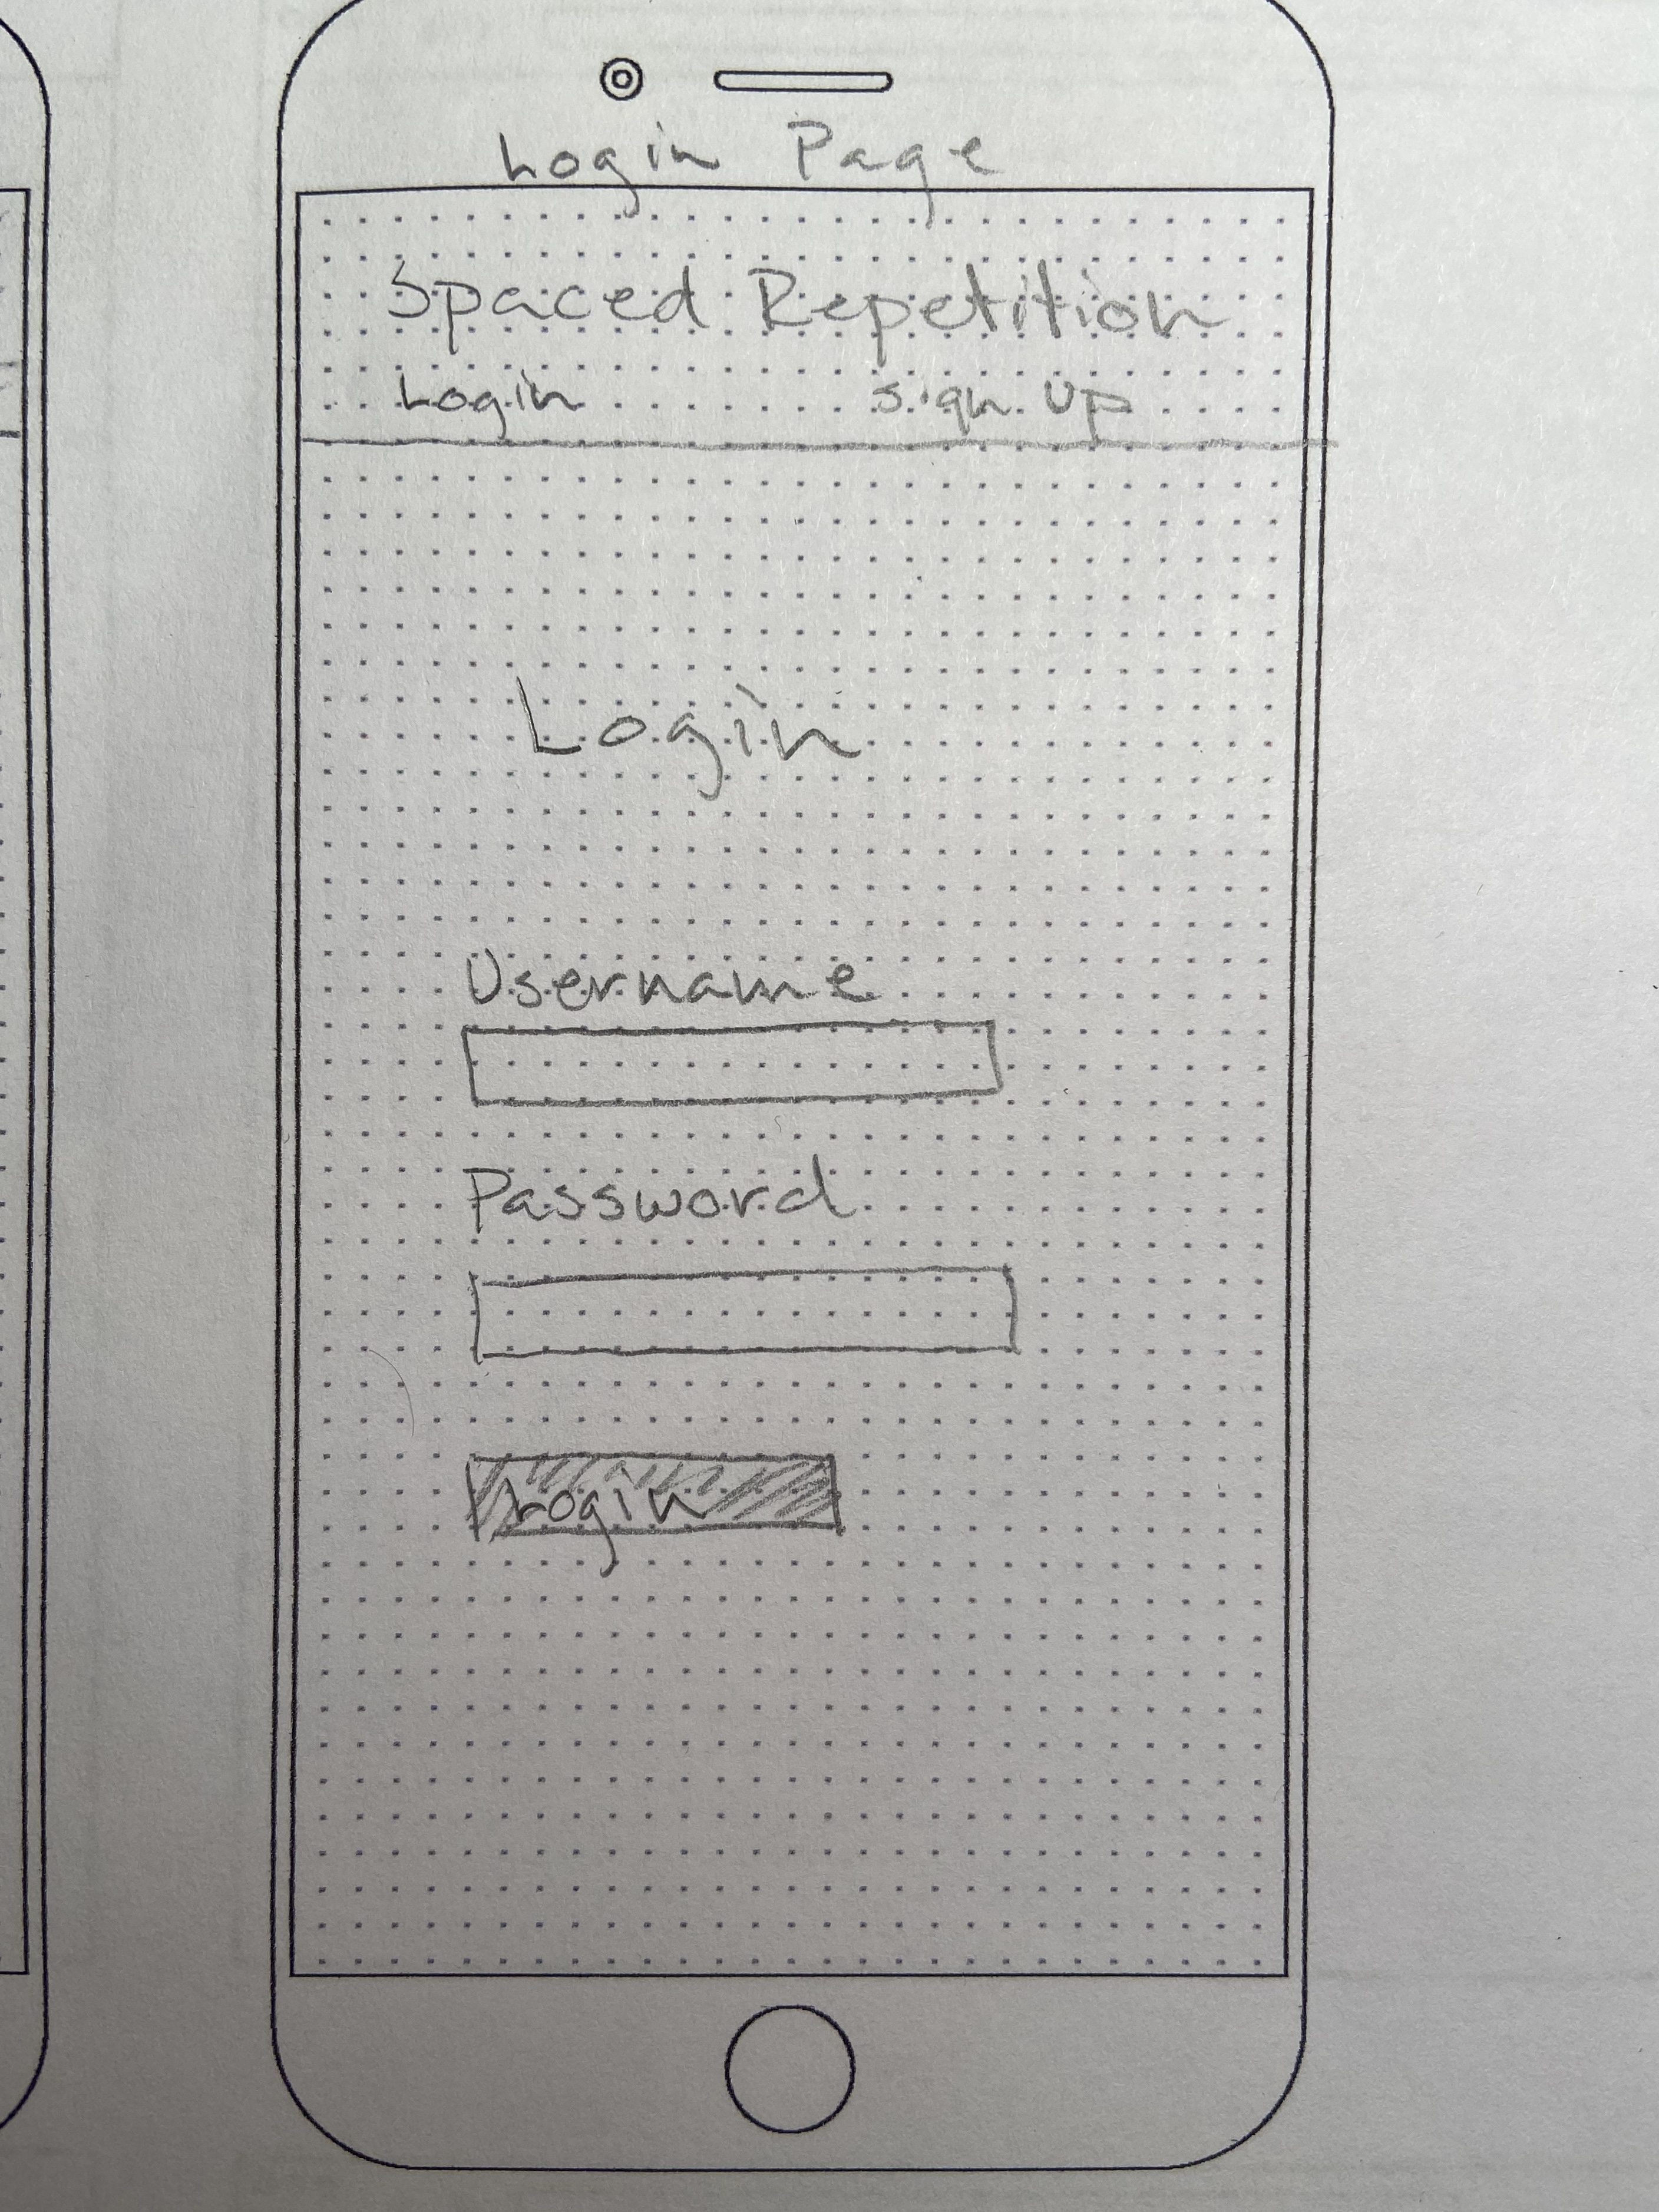 Login Page
Spaced Repetition
Login sign up
Login
Username
Password
Login